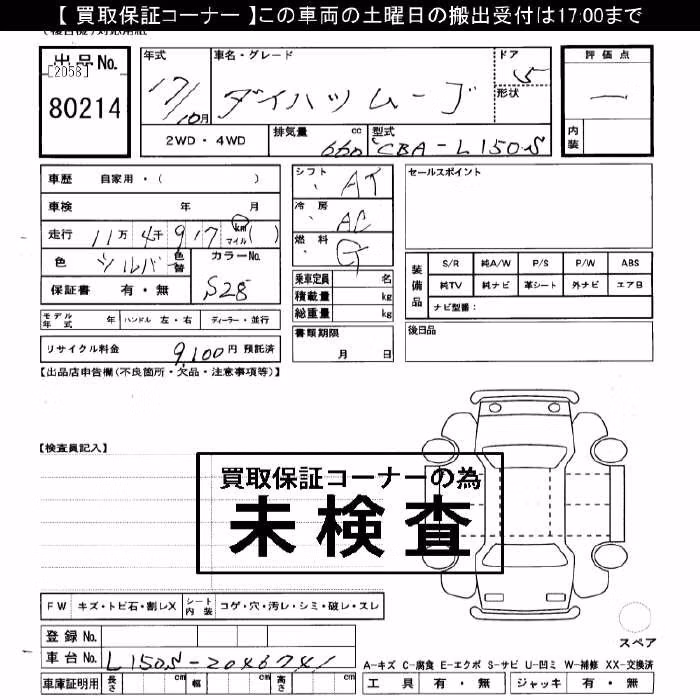 【 買取保証コーナー 】この車両の土曜日の搬出受付は17:00まで
出品No.
[2058]
80214
年式 車名・グレード ドア
17/10月 ダイハツ ムーブ 5
形状
2WD・4WD 排気量 660 cc 型式 CBA-L150S
評価点
―
内装
車歴 自家用・( )
車検 年 月
走行 11万 4千 9 1 7 km マイル ( )
色 シルバー 色替 カラーNo. S28
保証書 有・無
シフト AT
冷房 AC
燃料 G
乗車定員 名
積載量 kg
総重量 kg
書類期限
月 日
セールスポイント
装備品
S/R 純A/W P/S P/W ABS
純TV 純ナビ 革シート 外ナビ エアB
ナビ型番:
後日品
モデル年式 年 ハンドル 左・右 ディーラー・並行
リサイクル料金 9,100円 預託済
【出品店申告欄(不良箇所・欠品・注意事項等)】
【検査員記入】
買取保証コーナーの為
未検査
FW キズ・トビ石・割レX シート内装 コゲ・穴・汚レ・シミ・破レ・スレ
登録No.
車台No. L150S-2046741
車庫証明用 長さ cm 幅 cm 高さ cm
スペア
A-キズ C-腐食 E-エクボ S-サビ U-凹ミ W-補修 XX-交換済
工具 有・無 ジャッキ 有・無